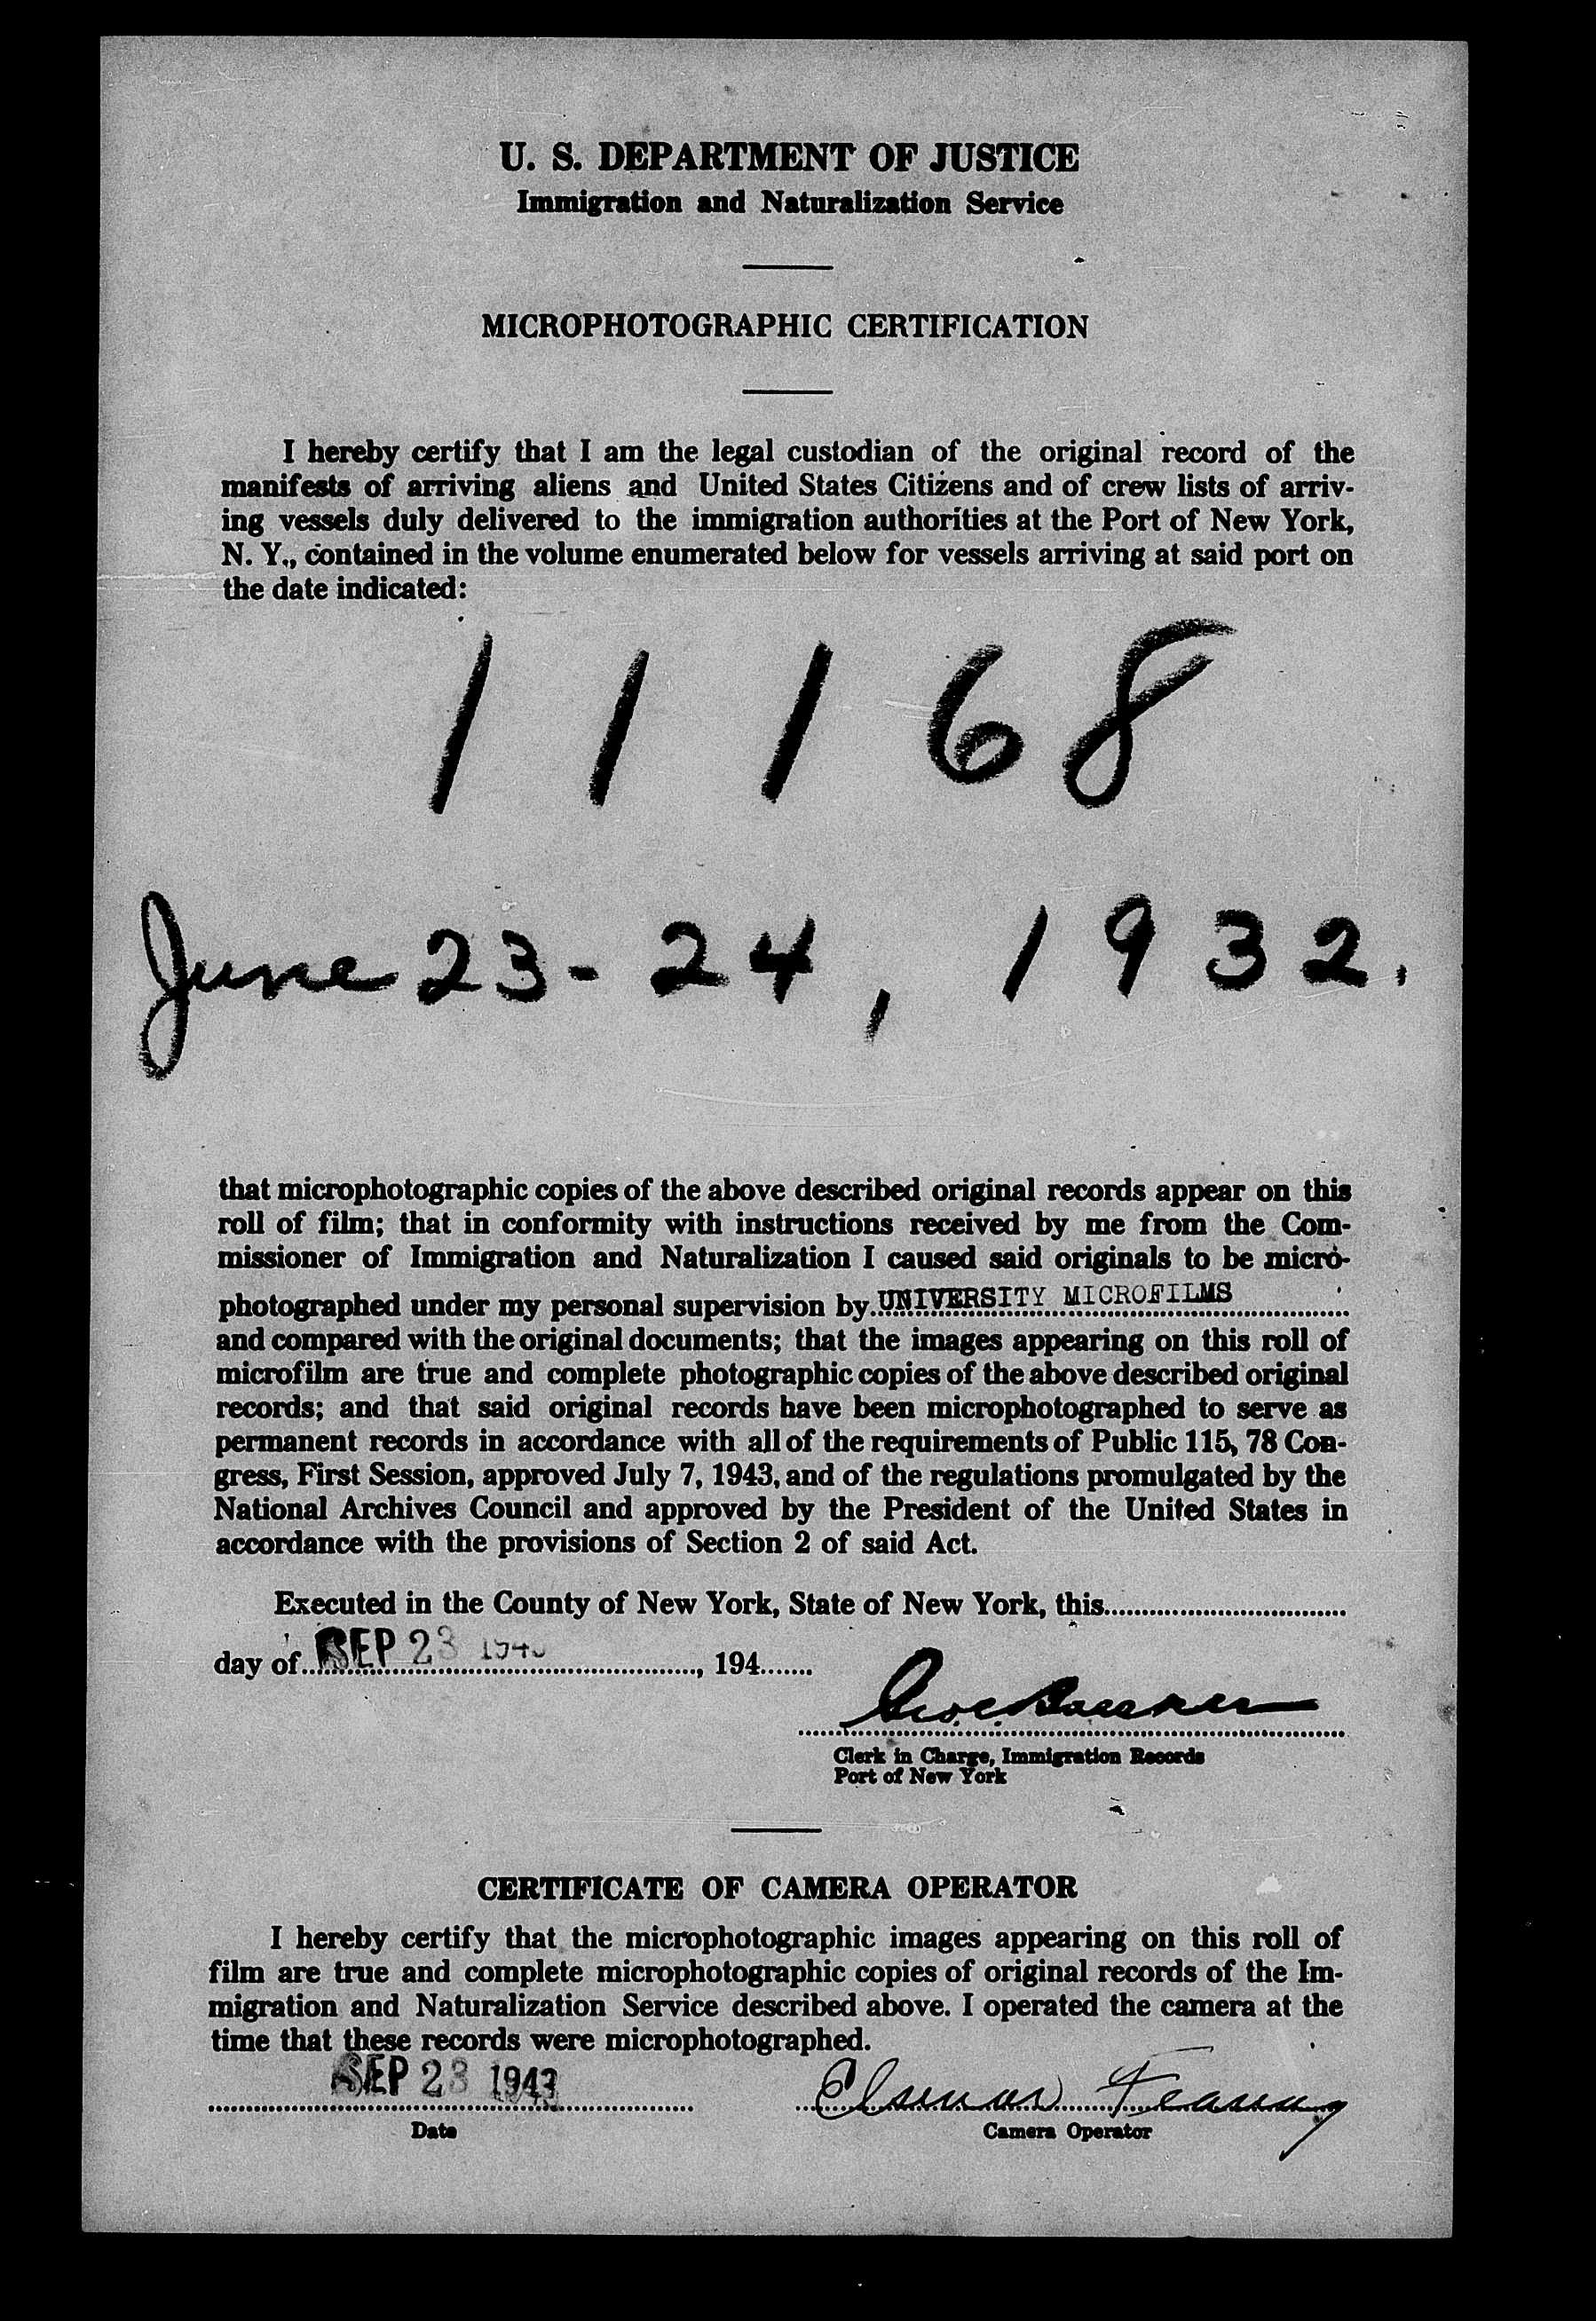 U. S. DEPARTMENT OF JUSTICE
Immigration and Naturalization Service
MICROPHOTOGRAPHIC CERTIFICATION
I hereby certify that I am the legal custodian of the original record of the
manifests of arriving aliens and United States Citizens and of crew lists of arriv-
ing vessels duly delivered to the immigration authorities at the Port of New York,
N. Y., contained in the volume enumerated below for vessels arriving at said port on
the date indicated:
11168
June 23 - 24, 1932.
that microphotographic copies of the above described original records appear on this
roll of film; that in conformity with instructions received by me from the Com-
missioner of Immigration and Naturalization I caused said originals to be micro-
photographed under my personal supervision by UNIVERSITY MICROFILMS
and compared with the original documents; that the images appearing on this roll of
microfilm are true and complete photographic copies of the above described original
records; and that said original records have been microphotographed to serve as
permanent records in accordance with all of the requirements of Public 115, 78 Con-
gress, First Session, approved July 7, 1943, and of the regulations promulgated by the
National Archives Council and approved by the President of the United States in
accordance with the provisions of Section 2 of said Act.
Executed in the County of New York, State of New York, this
day of SEP 23 , 194
Clerk in Charge, Immigration Records
Port of New York
CERTIFICATE OF CAMERA OPERATOR
I hereby certify that the microphotographic images appearing on this roll of
film are true and complete microphotographic copies of original records of the Im-
migration and Naturalization Service described above. I operated the camera at the
time that these records were microphotographed.
SEP 23 1943
Date
Camera Operator